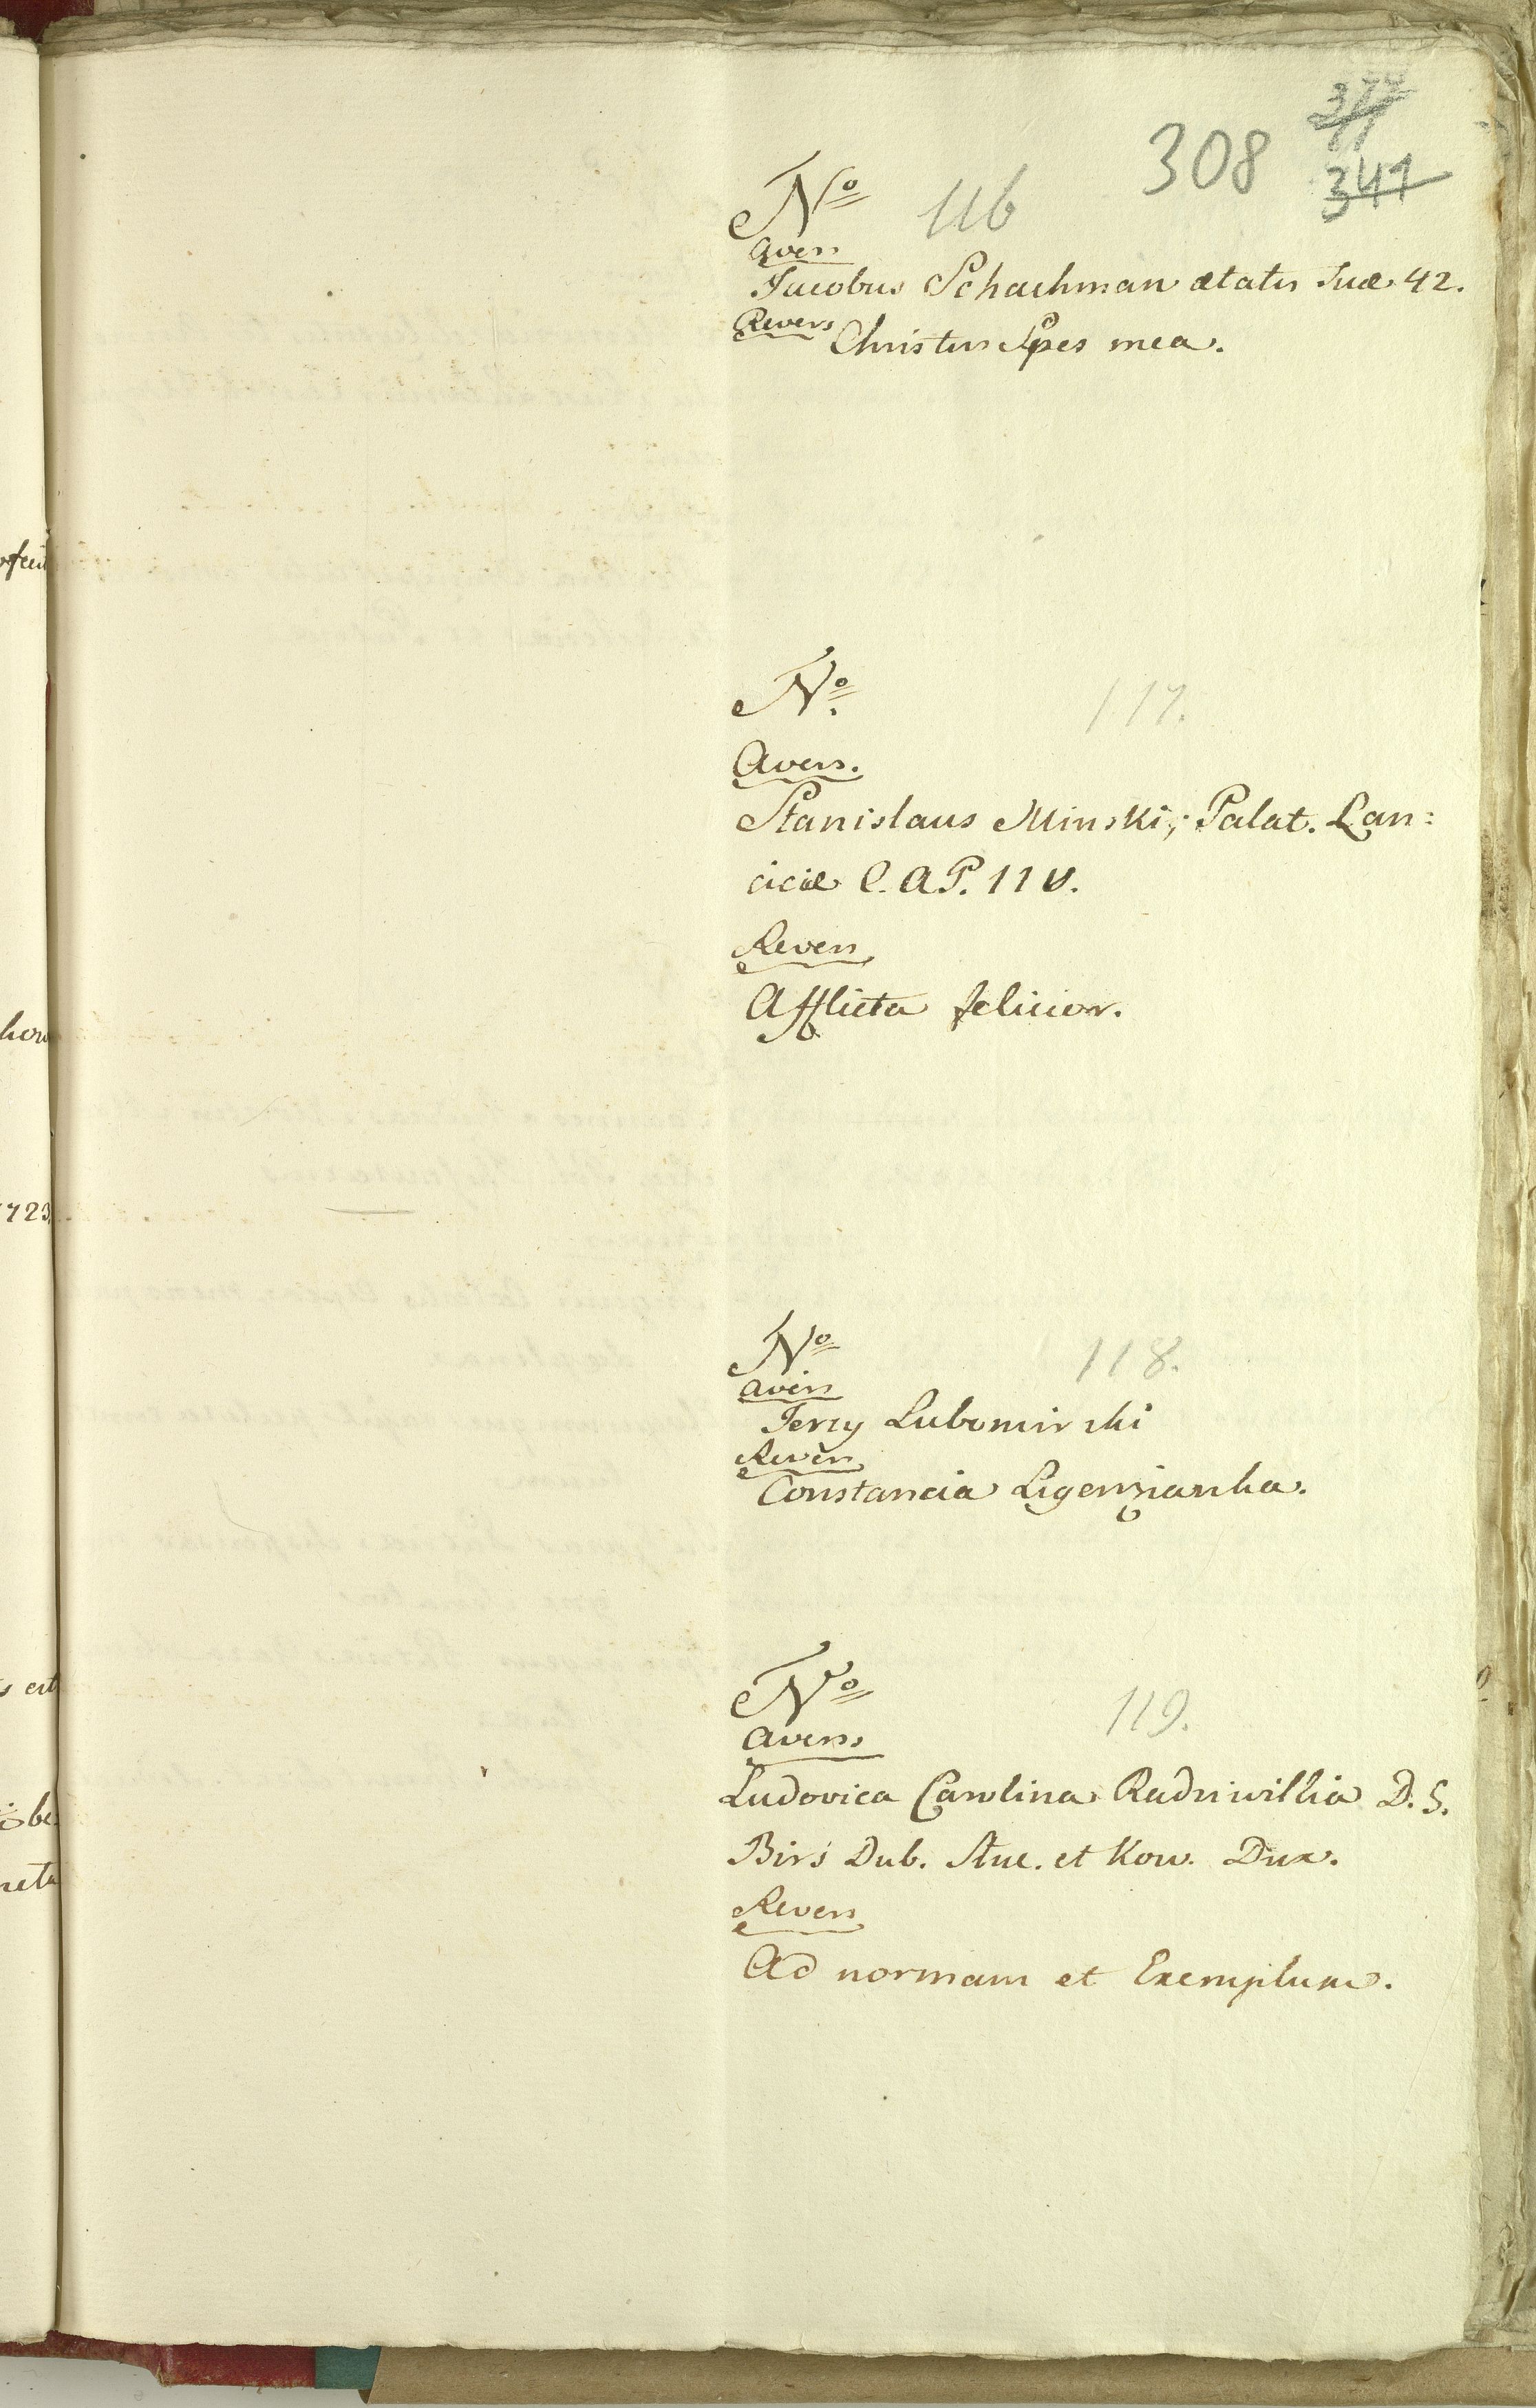 308
341
Nº 116
Avers
Jacobus Schachman ætatis suæ 42.
Revers
Christus Spes mea.
Nº 117.
Avers.
Stanislaus Minski, Palat. Lan:
ciciæ C. A P. 11 V.
Revers
Afflicta felicior.
Nº 118.
Avers
Jerzy Lubomirski
Revers
Constancia Ligenzianka.
Nº 119.
Avers
Ludovica Carolina Radziwillia D. S.
Birs Dub. Sluc. et Kow. Dux.
Revers
Ad normam et Exemplum.